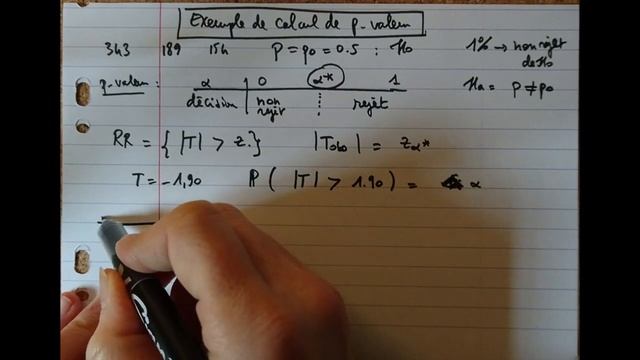 Exemple de calcul de p-valeur
343 189 154 P = p0 = 0.5 : H0 1% → non rejet de H0
p-valeur : α 0 α* 1 Ha = p ≠ p0
décision non rejet rejet
RR = { |T| > z. } |Tobs| = zα*
T = -1,90 P ( |T| > 1.90 ) = α